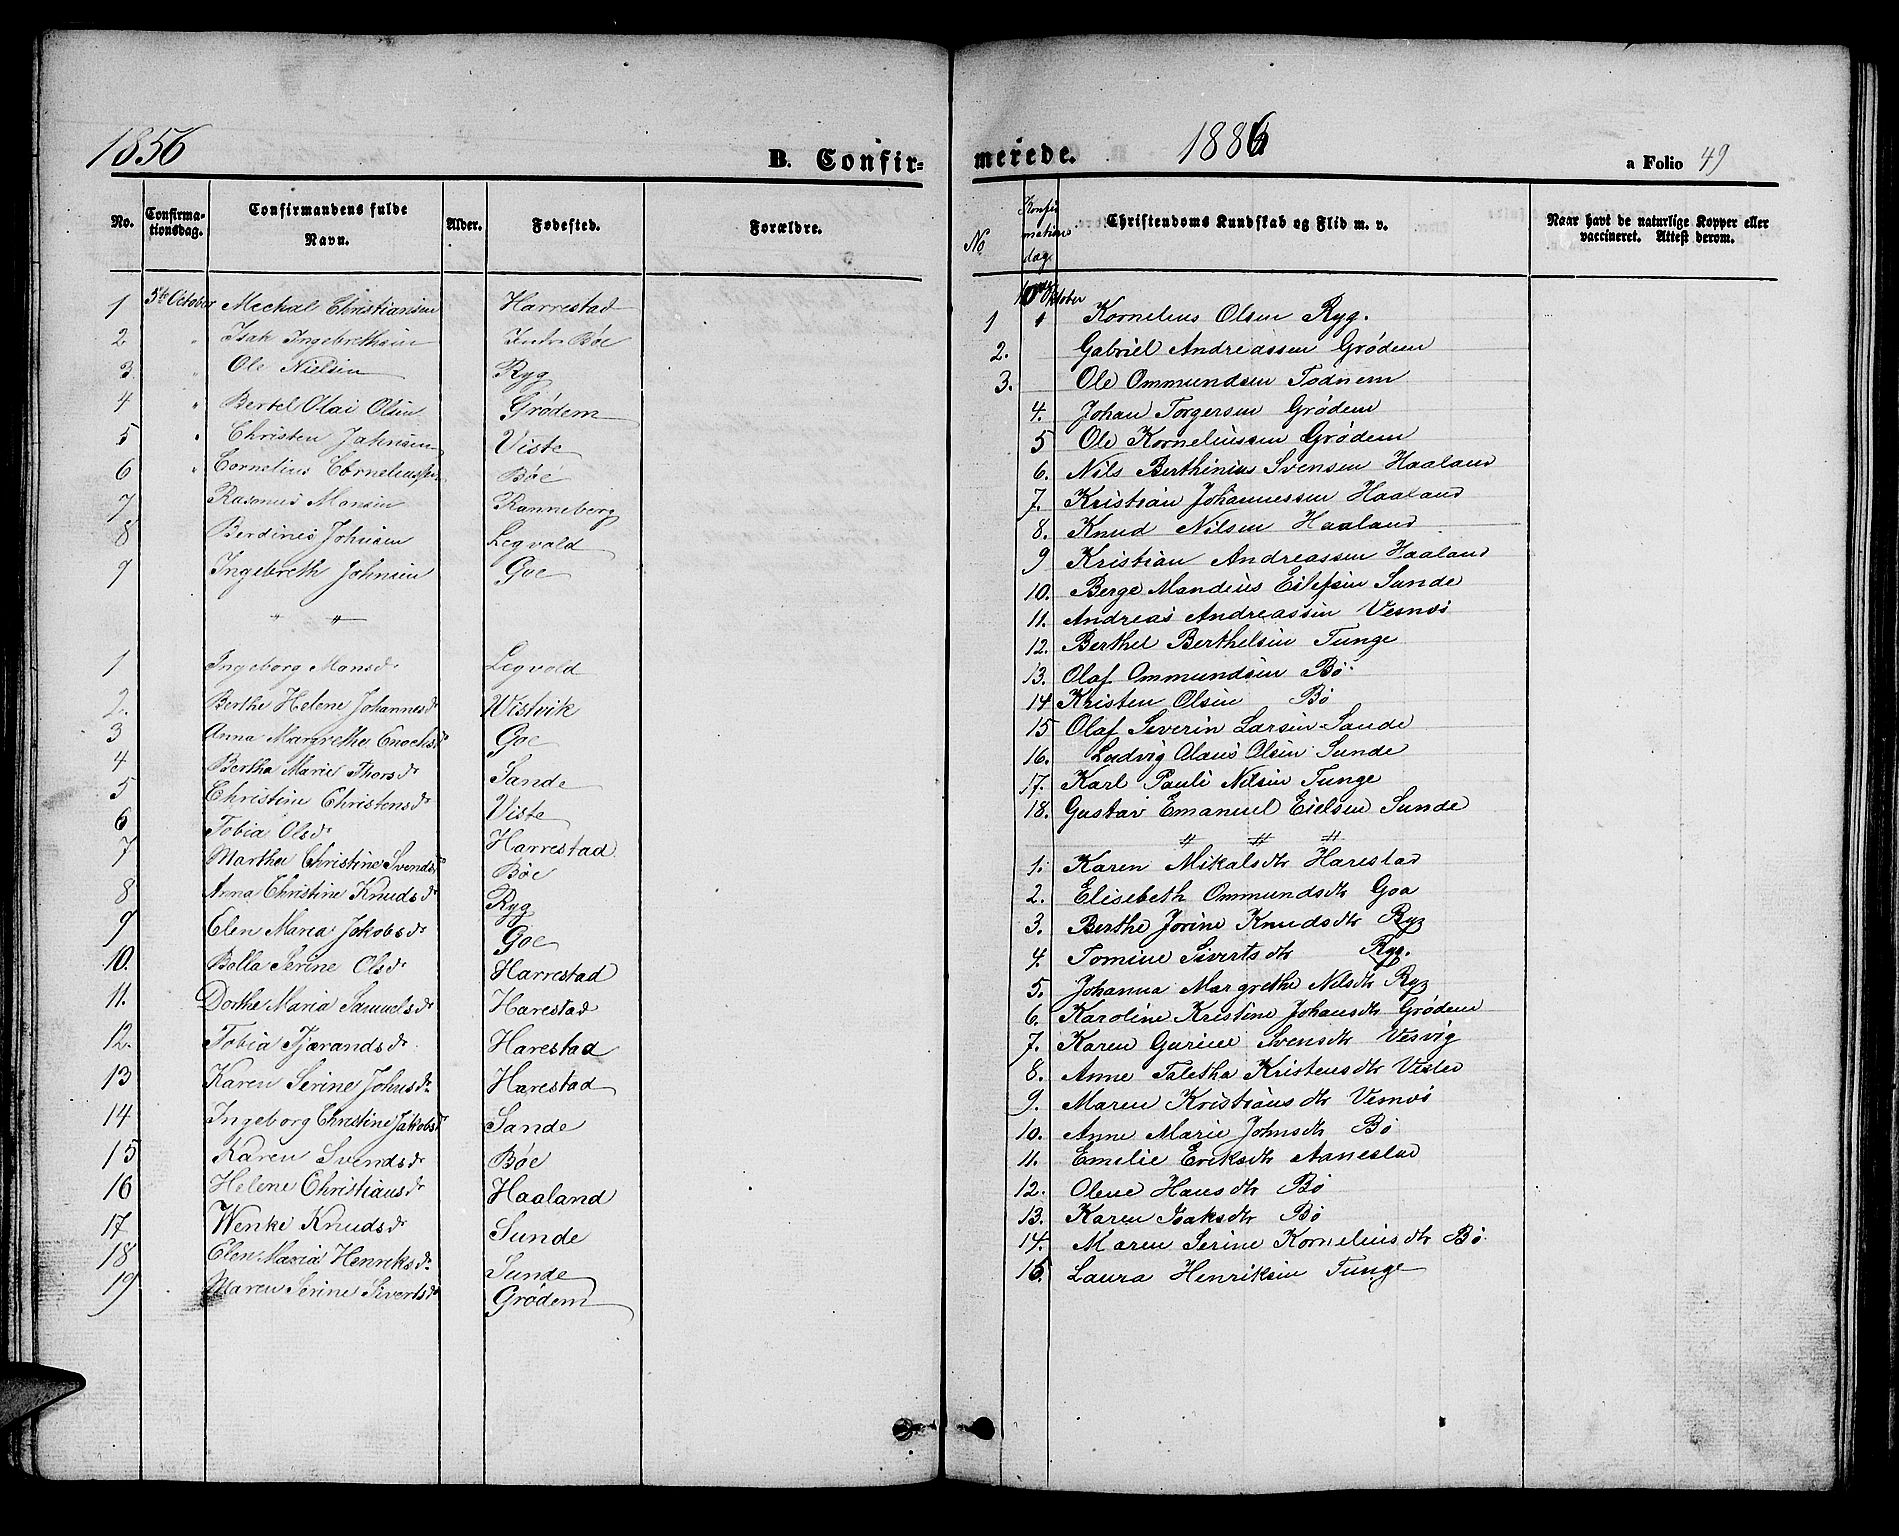 1856
B. Confir-
No.
Confirma-
tionsdag.
Confirmandens fulde
Navn.
Alder.
Fødested.
Forældre.
1 5te October Mechal Christiansen Harrestad
2 " Isak Ingebrethsen Indr. Bøe
3 " Ole Nielsen Ryg
4 " Bertel Olai Olsen Grødem
5 " Christen Johnsen Viste
6 " Cornelius Corneliussen Bøe
7 Rasmus Monsen Ranneberg
8 Berdines Johnsen Legvold
9 Ingebreth Johnsen Goe
" "
1 Ingeborg Monsdr Legvold
2. Berthe Helene Johannesdr Wistvik
3 Anna Margrethe Enochsdr Goe
4 Bertha Marie Thorsdr Sande
5 Christine Christensdr Viste
6 Tobia Olsdr Harrestad
7 Martha Christine Svendsdr Bøe
8 Anna Christine Knudsdr Ryg
9 Elen Maria Jakobsdr Goe
10. Bolla Serine Olsdr Harrestad
11. Dorthe Maria Samuelsdr Harestad
12. Tobia Tjærandsdr Harestad
13 Karen Serine Johnsdr Harestad
14 Ingeborg Christine Jakobsdr Sande
15 Karen Svendsdr Bøe
16 Helene Christiansdr Haaland
17 Wenke Knudsdr Sunde
18 Elen Maria Henriksdr Sunde
19 Maren Serine Sivertsdr Grødem
merede.
1886
a Folio 49
No
Konfir
mations
dag.
Christendoms Kundskab og Flid m. v.
Naar havt de naturlige Kopper eller
vaccineret. Attest derom.
Oktober
1 Kornelius Olsen Ryg.
2. Gabriel Andreassen Grødem
3. Ole Ommundsen Todnem
4. Johan Torgersen Grødem
5 Ole Korneliussen Grødem
6. Nils Berthinius Svensen Haaland
7. Kristian Johannessen Haaland
8. Knud Nilsen Haaland
9 Kristian Andreassen Haaland
10. Berge Mandius Eilefsen Sunde
11. Andreas Andreassen Vesnes
12. Berthel Berthelsen Tunge
13. Olaf Ommundsen Bø
14 Kristen Olsen Bø
15 Olaf Severin Larsen Sande
16. Ludvig Olaus Olsen Sunde
17. Karl Pauli Nilsen Tunge
18. Gustav Emanuel Eielsen Sunde
" " "
1. Karen Mikalsdtr Harestad
2. Elisebeth Ommundsdtr Goa
3. Berthe Jorine Knudsdtr Ryg
4. Tomine Sivertsdtr Ryg.
5. Johanna Margrethe Nilsdtr Ryg
6. Karoline Kristine Johansdtr Grødem
7. Karen Gurine Svensdtr Vesvig
8. Anne Taletha Kristensdtr Viste
9. Maren Kristiansdtr Vesnes
10. Anne Marie Johnsdtr Bø
11. Emelie Eriksdtr Aanestad
12. Olene Hansdtr Bø
13. Karen Isaksdtr Bø
14. Maren Serine Korneliusdtr Bø
15. Laura Henriksen Tunge